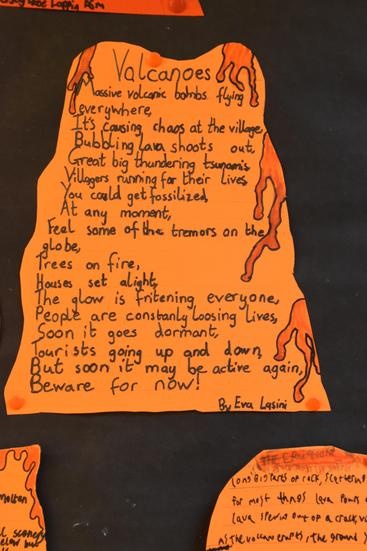 Valcanoes
Massive volcanic bombs flying
everywhere,
It's causing chaos at the village,
Bubbling lava shoots out,
Great big thundering tsunamis
Villagers running for their lives
You could get fossilized,
At any moment,
Feel some of the tremors on the
globe,
Trees on fire,
Houses set alight,
The glow is fritening everyone,
People are constantly loosing lives,
Soon it goes dormant,
Tourists going up and down,
But soon it may be active again,
Beware for now!
By Eva Lasini
molten
long bigparts of rock, scattering
for most things lava pours
lava spewing out of a crack,
as the volcano erupts, the ground